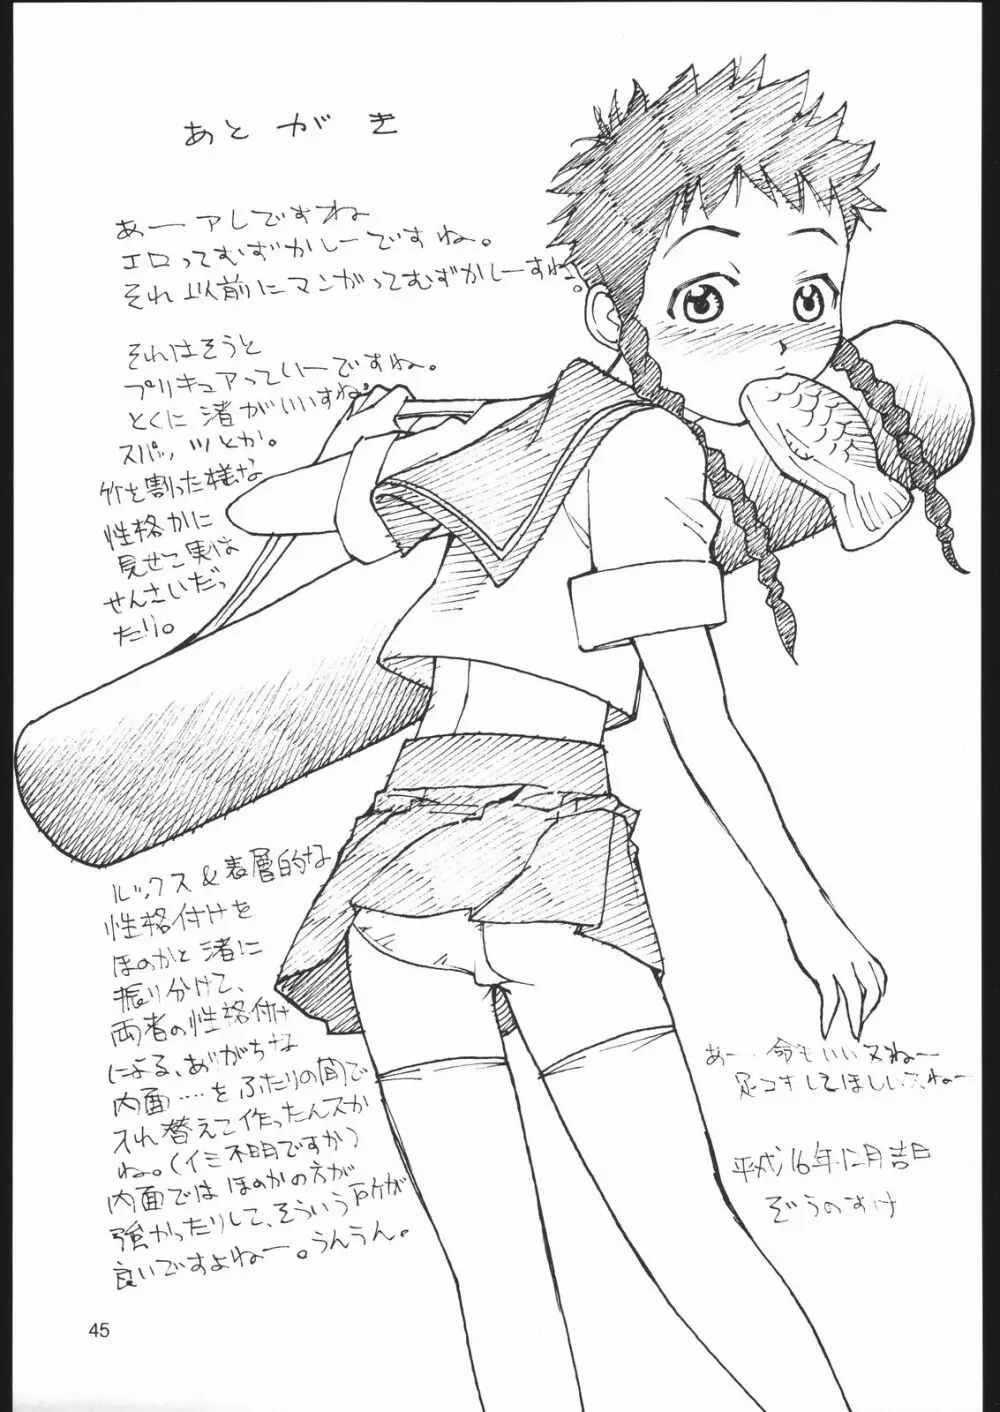 あとがき
あーアレですね
エロってむずかしーですね。
それ以前にマンガってむずかしーすね。
それはそうと
プリキュアっていーですね。
とくに渚がいいすね。
スパッツとか。
竹を割った様な
性格かに
見せて実は
せんさいだっ
たり。
ルックス&表層的な
性格付けを
ほのかと渚に
振り分けて、
両者の性格付け
による、ありがちな
内面……をふたりの間で
入れ替えて作ったんスか
ね。(イミ不明ですか)
内面ではほのかの方が
強かったりして、そういう所が
良いですよねー。うんうん。
あー 命もいいスねー
足コキしてほしいスねー
平成16年12月吉日
ぞうのすけ
45